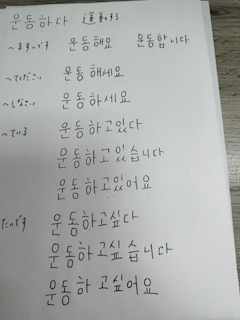 운동하다 運動する
~ます、です 운동해요 운동합니다
~てください 운동 해세요
~しなさい 운동하세요
~ている 운동하고있다
운동하고있습니다
운동하고있어요
たいです 운동하고싶다
운동하고싶습니다
운동하고싶어요